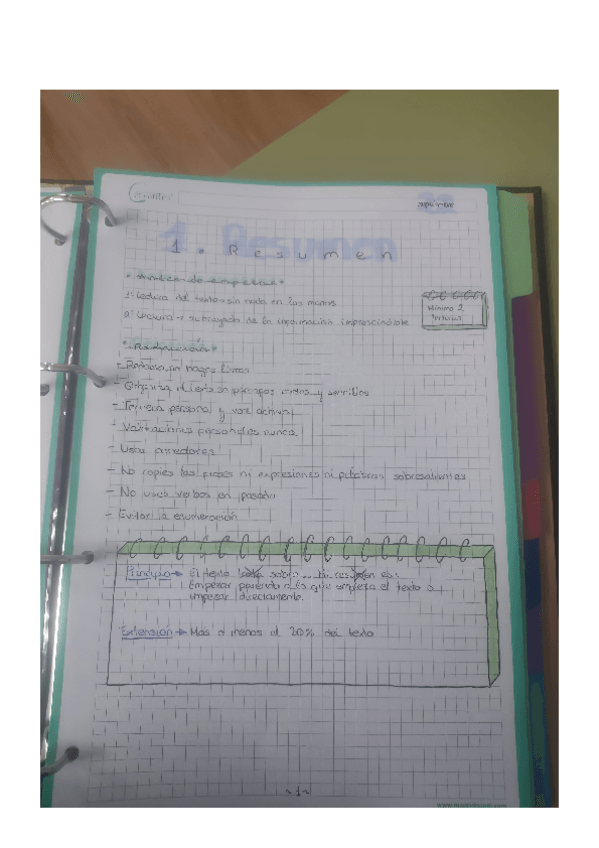 apuntes
1. Resumen
• Antes de empezar •
1º Lectura del texto sin nada en las manos
2º Lectura + subrayado de la información imprescindible
Mínimo 2
lecturas
• Redacción •
- Redactar en
- Organiza y sencillos
- Tercera persona y voz activa
- Valoraciones personales nunca
- Usar conectores
- No copies las frases ni expresiones ni palabras sobresalientes
- No uses verbos en pasado
- Evitar la enumeración
Principio → El texto trata sobre... 
Empezar poniendo a lo que empieza el texto o
empezar directamente.
Extensión → Más o menos el 20% del texto
- 1 -